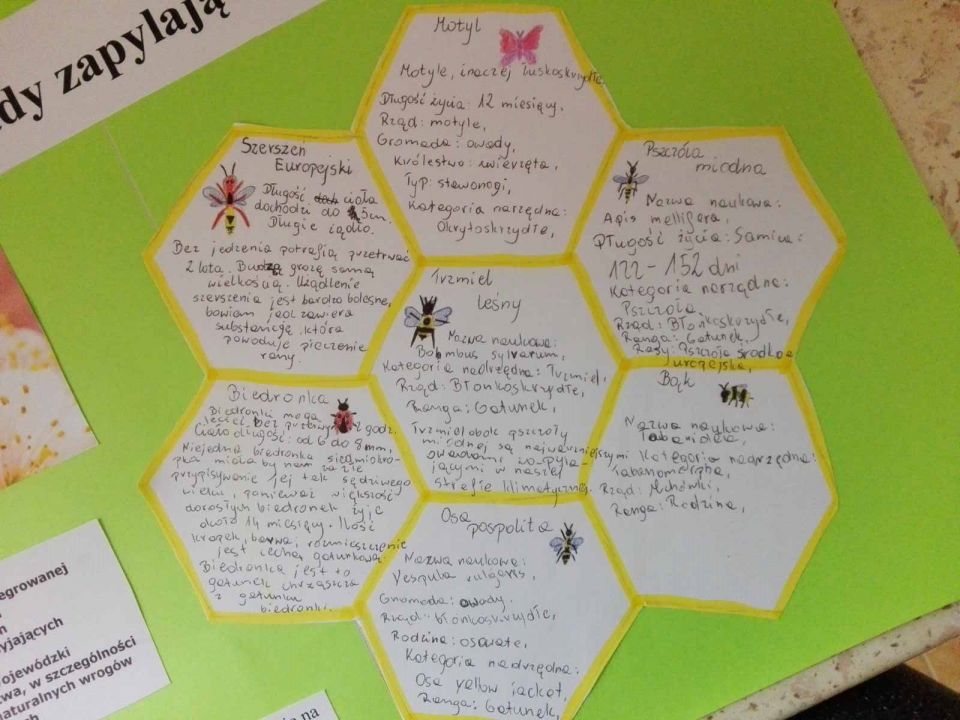 dy zapylają
Motyl
Motyle, inaczej łuskoskrzydłe
Długość życia: 12 miesięcy,
Rząd: motyle,
Gromada: owady,
Królestwo: zwierzęta,
Typ: stawonogi,
Kategoria narzędna:
Okrytoskrzydłe,
Szerszeń
Europejski
Długość ciała
dochodzi do 3,5cm.
Długie żądło.
Bez jedzenia potrafią przetrwać
2 lata. Budzą grozę samą
wielkością. Użądlenie
szerszenia jest bardzo bolesne,
bowiem jad zawiera
substancję która
powoduje pieczenie
rany.
Pszczoła
miodna
Nazwa naukowa:
Apis mellifera,
Długość życia: Samica:
122-152 dni
Kategoria narządna:
Pszczoła
Rząd: Błonkoskrzydłe,
Ranga: Gatunek,
Rasy: Pszczoła środkoa
uropejska,
Trzmiel
leśny
Nazwa naukowa:
Bombous sylvarum,
Kategoria nadrzędna: Trzmiel,
Rząd: Błonkoskrzydłe,
Ranga: Gatunek,
Trzmiel obok pszczoły
miodnej są najważniejszymi
owadami zapyla-
jącymi w naszej
strefie klimatycznej.
Biedronka
Biedronki mogą
lecieć bez przerwy godz.
Ciało długość: od 6 do 8mm,
Niejedna biedronka siedmiokro-
pka miała by nam za złe
przypisywanie jej tak sędziwego
wieku, ponieważ większość
dorosłych biedronek żyje
około 14 miesięcy. Ilość
kropek, barwa, rozmieszczenie
jest cechą gatunkową.
Biedronka jest to
gatunek chrząszcza
z gatunku
biedronki.
Bąk
Nazwa naukowa:
Tabanidea,
Kategoria nadrzędna:
Tabanomorpha,
Rząd: Muchówki,
Ranga: Rodzina,
Osa
pospolita
Nazwa naukowa:
Vespula vulgaris,
Gromada: owady.
Rząd: błonkoskrzydłe,
Rodzina: osowate,
Kategoria nadrzędna:
Osa yellow jacket,
Ranga: Gatunek,
egrowanej
h
yjających
ojewódzki
twa, w szczególności
naturalnych wrogów
ch
na